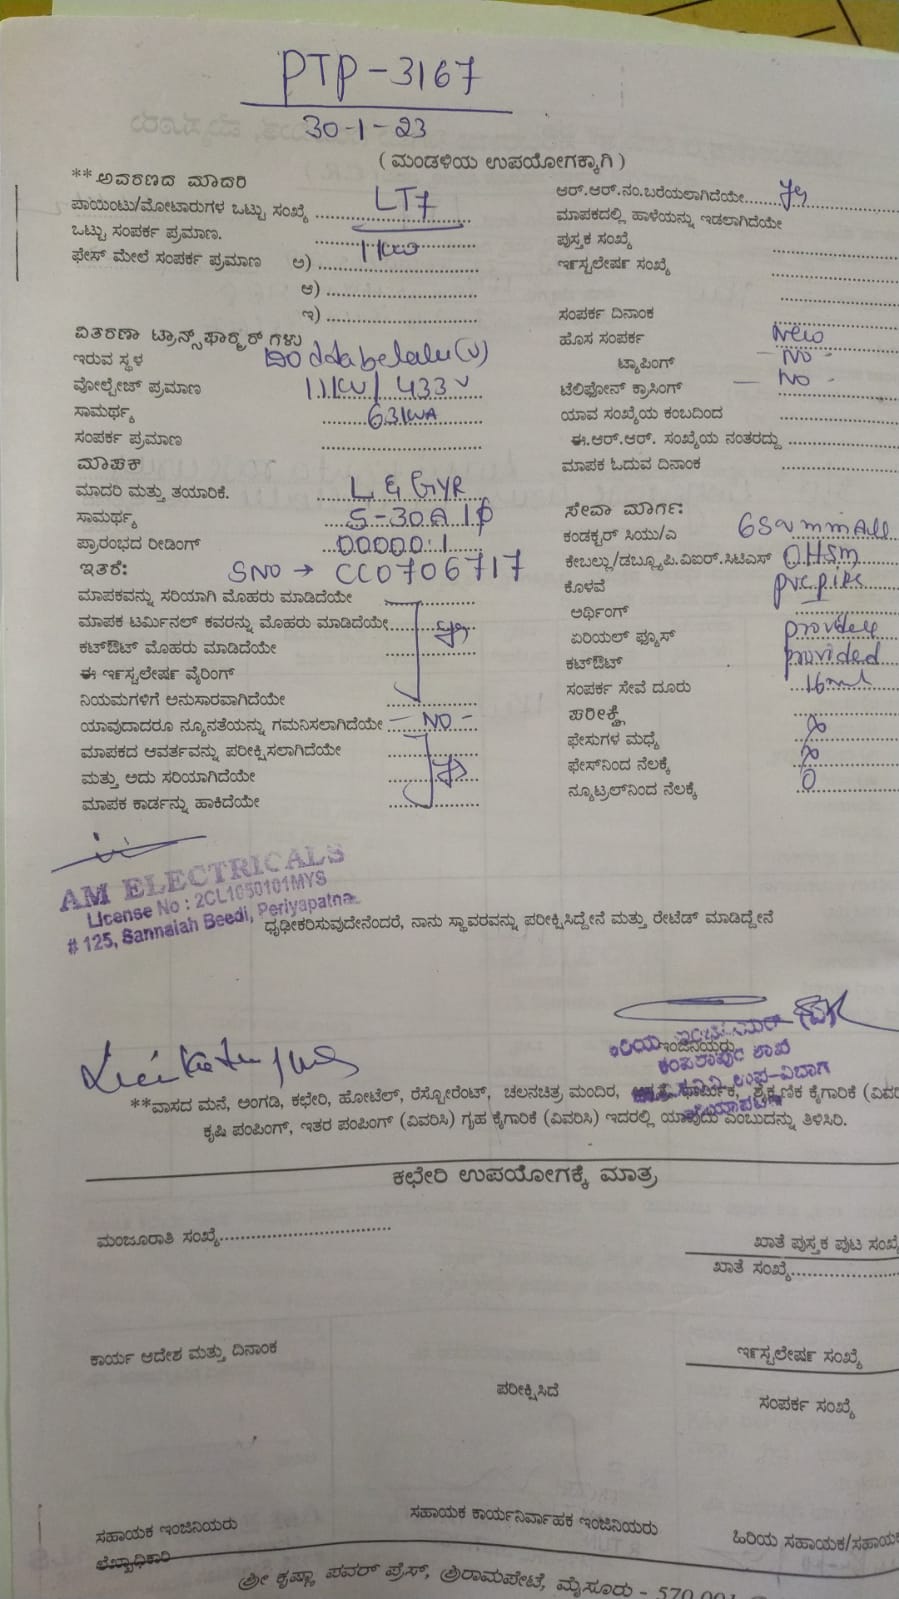 PTP-3167
30-1-23
( ಮಂಡಳಿಯ ಉಪಯೋಗಕ್ಕಾಗಿ )
**ಅವರಣದ ಮಾದರಿ
ಪಾಯಿಂಟು/ಮೋಟಾರುಗಳ ಒಟ್ಟು ಸಂಖ್ಯೆ LT7
ಒಟ್ಟು ಸಂಪರ್ಕ ಪ್ರಮಾಣ. 1KW
ಫೇಸ್ ಮೇಲೆ ಸಂಪರ್ಕ ಪ್ರಮಾಣ ಅ)
ಆ)
ಇ)
ವಿತರಣಾ ಟ್ರಾನ್ಸ್‌ಫಾರ್ಮರ್ ಗಳು
ಇರುವ ಸ್ಥಳ Doddabelalu(v)
ವೋಲ್ಟೇಜ್ ಪ್ರಮಾಣ 11KV/433V
ಸಾಮರ್ಥ್ಯ 63KVA
ಸಂಪರ್ಕ ಪ್ರಮಾಣ
ಮಾಪಕ
ಮಾದರಿ ಮತ್ತು ತಯಾರಿಕೆ. L & GYR
ಸಾಮರ್ಥ್ಯ 5-30A 1φ
ಪ್ರಾರಂಭದ ರೀಡಿಂಗ್ 00000.1
ಇತರೆ: SNO → CC0706717
ಮಾಪಕವನ್ನು ಸರಿಯಾಗಿ ಮೊಹರು ಮಾಡಿದೆಯೇ
ಮಾಪಕ ಟರ್ಮಿನಲ್ ಕವರನ್ನು ಮೊಹರು ಮಾಡಿದೆಯೇ
ಕಟ್‌ಔಟ್ ಮೊಹರು ಮಾಡಿದೆಯೇ
ಈ ಇನ್‌ಸ್ಟಲೇಷನ್ ವೈರಿಂಗ್
ನಿಯಮಗಳಿಗೆ ಅನುಸಾರವಾಗಿದೆಯೇ
ಯಾವುದಾದರೂ ನ್ಯೂನತೆಯನ್ನು ಗಮನಿಸಲಾಗಿದೆಯೇ - NO -
ಮಾಪಕದ ಆವರ್ತವನ್ನು ಪರೀಕ್ಷಿಸಲಾಗಿದೆಯೇ
ಮತ್ತು ಅದು ಸರಿಯಾಗಿದೆಯೇ
ಮಾಪಕ ಕಾರ್ಡನ್ನು ಹಾಕಿದೆಯೇ
ಆರ್.ಆರ್.ನಂ.ಬರೆಯಲಾಗಿದೆಯೇ
ಮಾಪಕದಲ್ಲಿ ಹಾಳೆಯನ್ನು ಇಡಲಾಗಿದೆಯೇ
ಪುಸ್ತಕ ಸಂಖ್ಯೆ
ಇನ್‌ಸ್ಟಲೇಷನ್ ಸಂಖ್ಯೆ
ಸಂಪರ್ಕ ದಿನಾಂಕ
ಹೊಸ ಸಂಪರ್ಕ New
ಟ್ಯಾಪಿಂಗ್ - NO -
ಟೆಲಿಫೋನ್ ಕ್ರಾಸಿಂಗ್ - NO -
ಯಾವ ಸಂಖ್ಯೆಯ ಕಂಬದಿಂದ
ಈ.ಆರ್.ಆರ್. ಸಂಖ್ಯೆಯ ನಂತರದ್ದು
ಮಾಪಕ ಓದುವ ದಿನಾಂಕ
ಸೇವಾ ಮಾರ್ಗ:
ಕಂಡಕ್ಟರ್ ಸಿಯು/ಎ
ಕೇಬಲ್ಲು/ಡಬ್ಲ್ಯೂ.ಪಿ.ವಿಐಆರ್.ಸಿಟಿಎಸ್ OHSM
ಕೊಳವೆ pvc pipe
ಅರ್ಥಿಂಗ್
ಏರಿಯಲ್ ಫ್ಯೂಸ್ provided
ಕಟ್‌ಔಟ್ provided
ಸಂಪರ್ಕ ಸೇವೆ ದೂರು
ಪರೀಕ್ಷೆ
ಫೇಸುಗಳ ಮಧ್ಯೆ
ಫೇಸ್‌ನಿಂದ ನೆಲಕ್ಕೆ
ನ್ಯೂಟ್ರಲ್‌ನಿಂದ ನೆಲಕ್ಕೆ 0
AM ELECTRICALS
License No : 2CL1050101MYS
# 125, Sannaiah Beedi, Periyapatna
ಧೃಢೀಕರಿಸುವುದೇನೆಂದರೆ, ನಾನು ಸ್ಥಾವರವನ್ನು ಪರೀಕ್ಷಿಸಿದ್ದೇನೆ ಮತ್ತು ರೇಟೆಡ್ ಮಾಡಿದ್ದೇನೆ
ಇಂಜಿನಿಯರು
**ವಾಸದ ಮನೆ, ಅಂಗಡಿ, ಕಛೇರಿ, ಹೋಟೆಲ್, ರೆಸ್ಟೋರೆಂಟ್, ಚಲನಚಿತ್ರ ಮಂದಿರ, ಧಾರ್ಮಿಕ, ಶೈಕ್ಷಣಿಕ ಕೈಗಾರಿಕೆ
ಕೃಷಿ ಪಂಪಿಂಗ್, ಇತರ ಪಂಪಿಂಗ್ (ವಿವರಿಸಿ) ಗೃಹ ಕೈಗಾರಿಕೆ (ವಿವರಿಸಿ) ಇದರಲ್ಲಿ ಯಾವುದು ಎಂಬುದನ್ನು ತಿಳಿಸಿರಿ.
ಕಛೇರಿ ಉಪಯೋಗಕ್ಕೆ ಮಾತ್ರ
ಮಂಜೂರಾತಿ ಸಂಖ್ಯೆ
ಖಾತೆ ಪುಸ್ತಕ ಪುಟ ಸಂಖ್ಯೆ
ಖಾತೆ ಸಂಖ್ಯೆ
ಕಾರ್ಯ ಆದೇಶ ಮತ್ತು ದಿನಾಂಕ
ಇನ್‌ಸ್ಟಲೇಷನ್ ಸಂಖ್ಯೆ
ಪರೀಕ್ಷಿಸಿದೆ
ಸಂಪರ್ಕ ಸಂಖ್ಯೆ
ಸಹಾಯಕ ಇಂಜಿನಿಯರು
ಸಹಾಯಕ ಕಾರ್ಯನಿರ್ವಾಹಕ ಇಂಜಿನಿಯರು
ಹಿರಿಯ ಸಹಾಯಕ/
ಲೆಖ್ಖಾಧಿಕಾರಿ
ಶ್ರೀ ಕೃಷ್ಣಾ ಪವರ್ ಪ್ರೆಸ್, ಶ್ರೀರಾಮಪೇಟೆ, ಮೈಸೂರು - 570 001